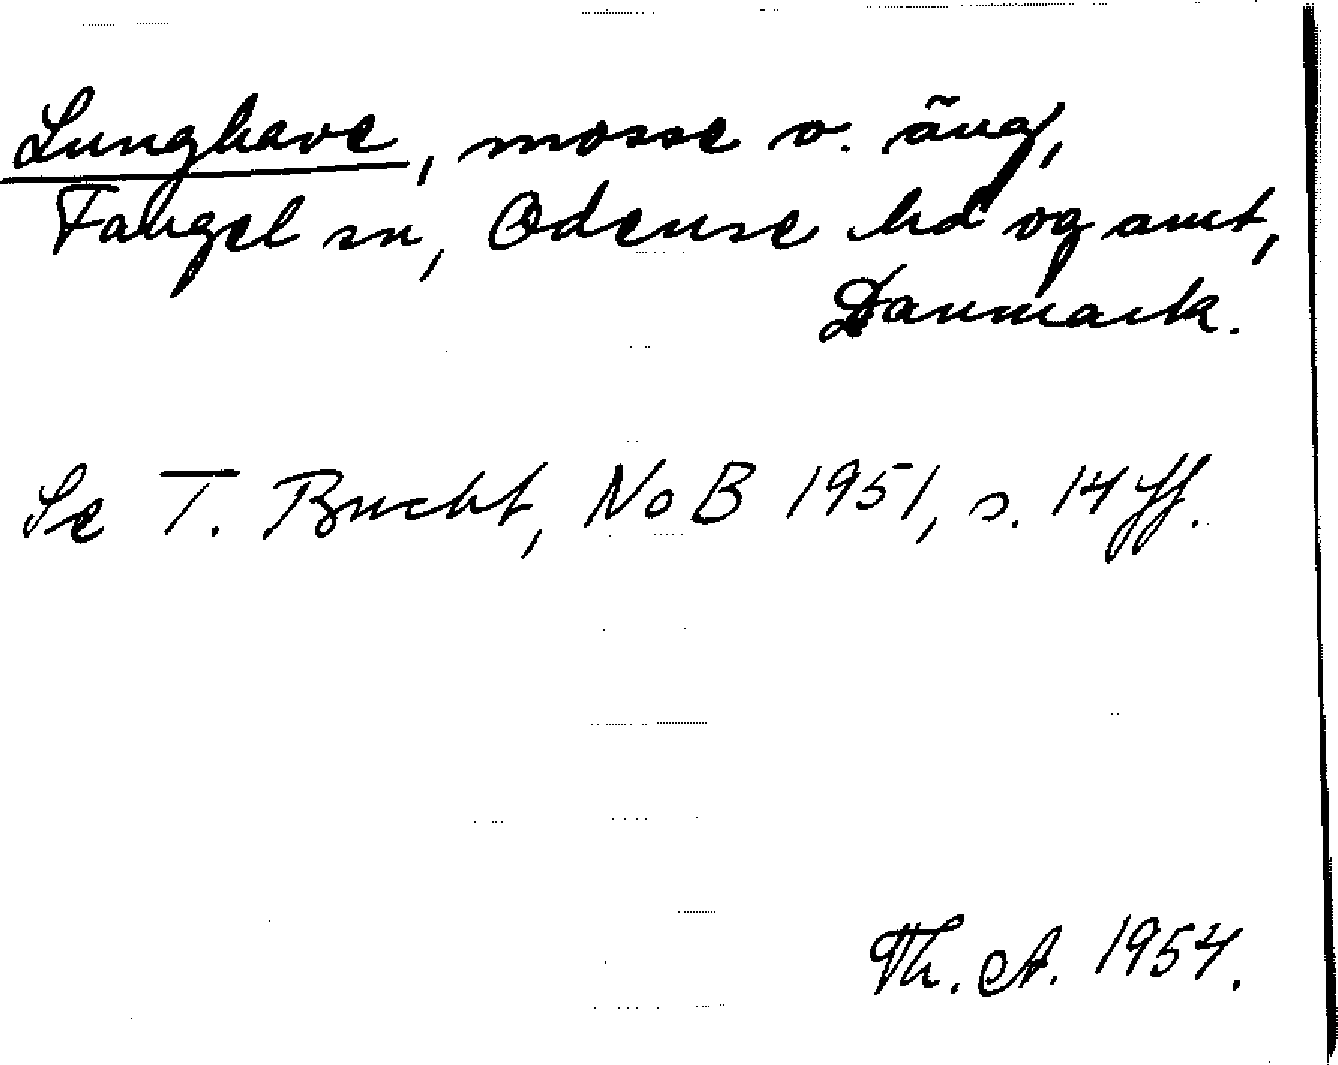 Lunghave, mosse o. äng,
Fangel sn, Odense hd og amt,
Danmark.
Se T. Bucht, NoB 1951, s. 14 ff.
Th. A. 1954.